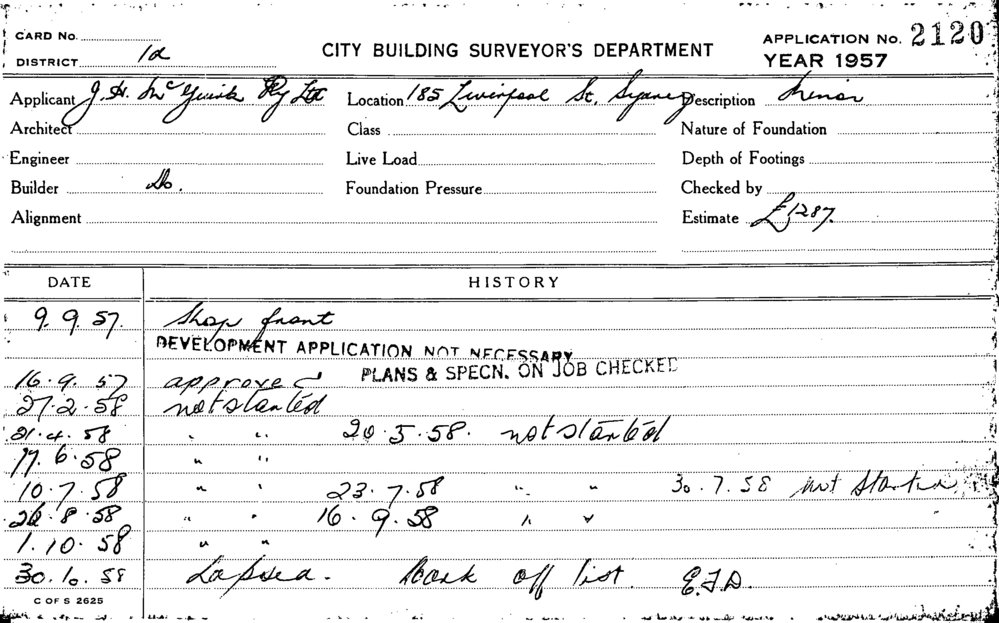 CARD No.
DISTRICT 1d
CITY BUILDING SURVEYOR'S DEPARTMENT
APPLICATION No. 2120
YEAR 1957
Applicant J. H. McGuirk Pty Ltd Location 185 Liverpool St. Sydney Description Minor
Architect Class Nature of Foundation
Engineer Live Load Depth of Footings
Builder Do. Foundation Pressure Checked by
Alignment Estimate £1287.
DATE HISTORY
9.9.57. Shop front
DEVELOPMENT APPLICATION NOT NECESSARY
PLANS & SPECN. ON JOB CHECKED
16.9.57 approved
27.2.58 not started
21.4.58 " " 20.5.58. not started
17.6.58 " "
10.7.58 " " 23.7.58 " " 30.7.58 not started
26.8.58 " " 16.9.58 " "
1.10.58 " "
30.10.58 Lapsed. off list. E.J.D.
C OF S 2625